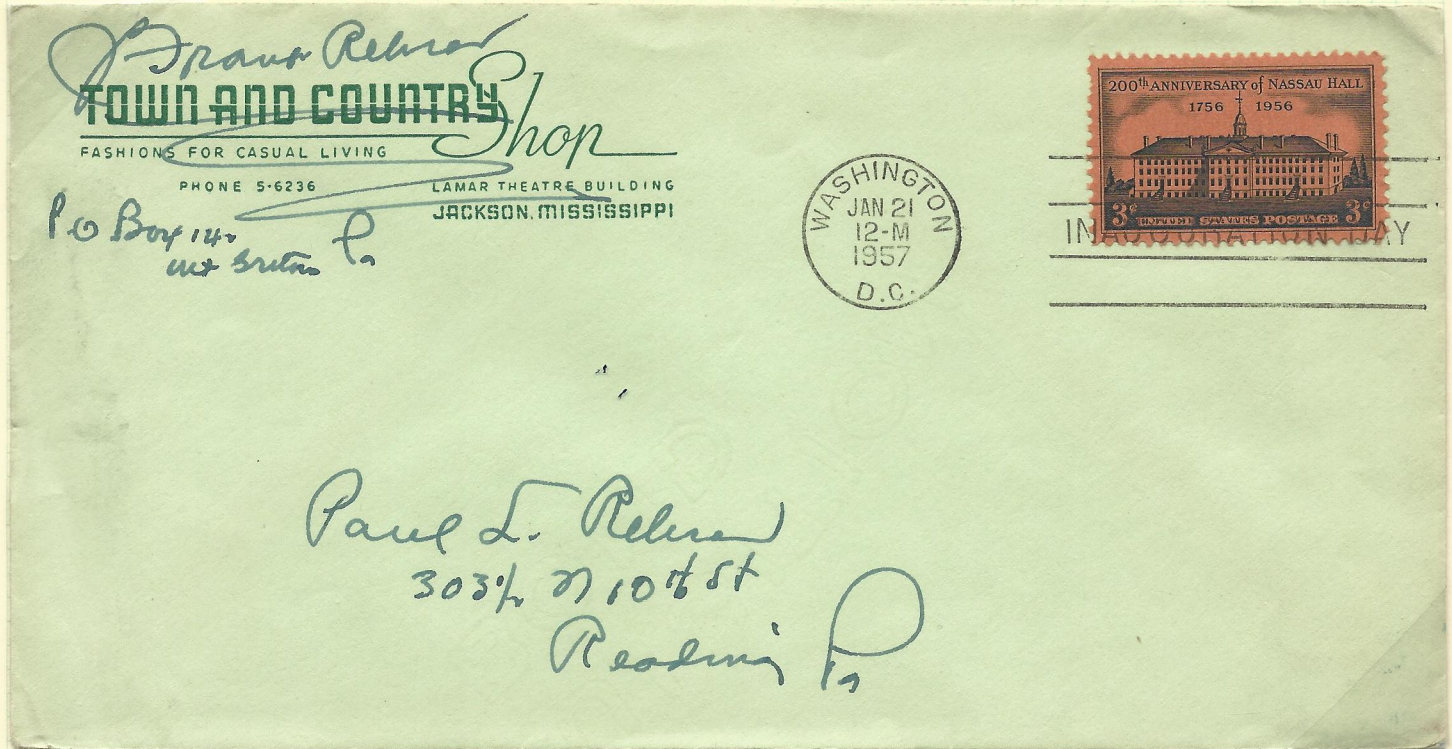 TOWN AND COUNTRY Shop
FASHIONS FOR CASUAL LIVING
PHONE 5-6236
LAMAR THEATRE BUILDING
JACKSON, MISSISSIPPI
P O Box 142
Mt Gretna Pa
WASHINGTON
JAN 21
12-M
1957
D.C.
200th ANNIVERSARY of NASSAU HALL
1756 1956
3¢ UNITED STATES POSTAGE 3¢
INAUGURATION DAY
Paul L.
303½ N 10th St
Reading Pa